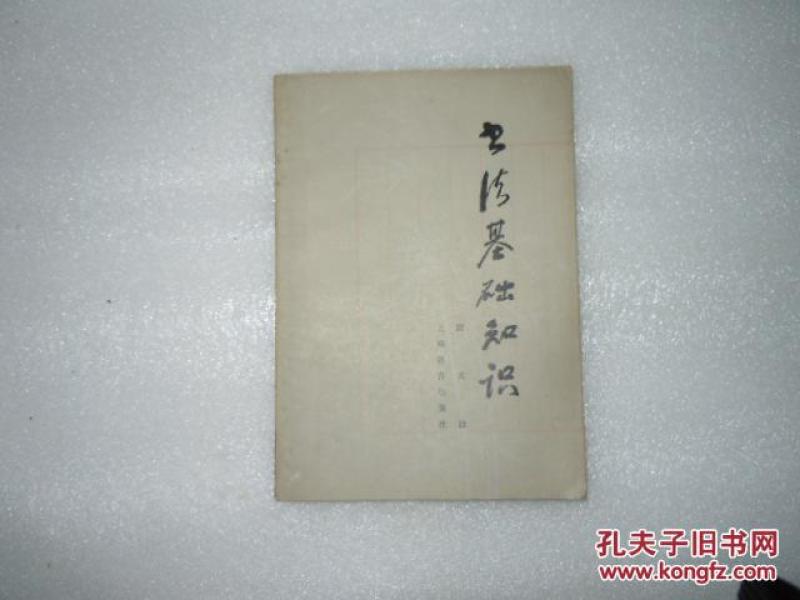 书法基础知识
上海教育出版社
孔夫子旧书网
www.kongfz.com